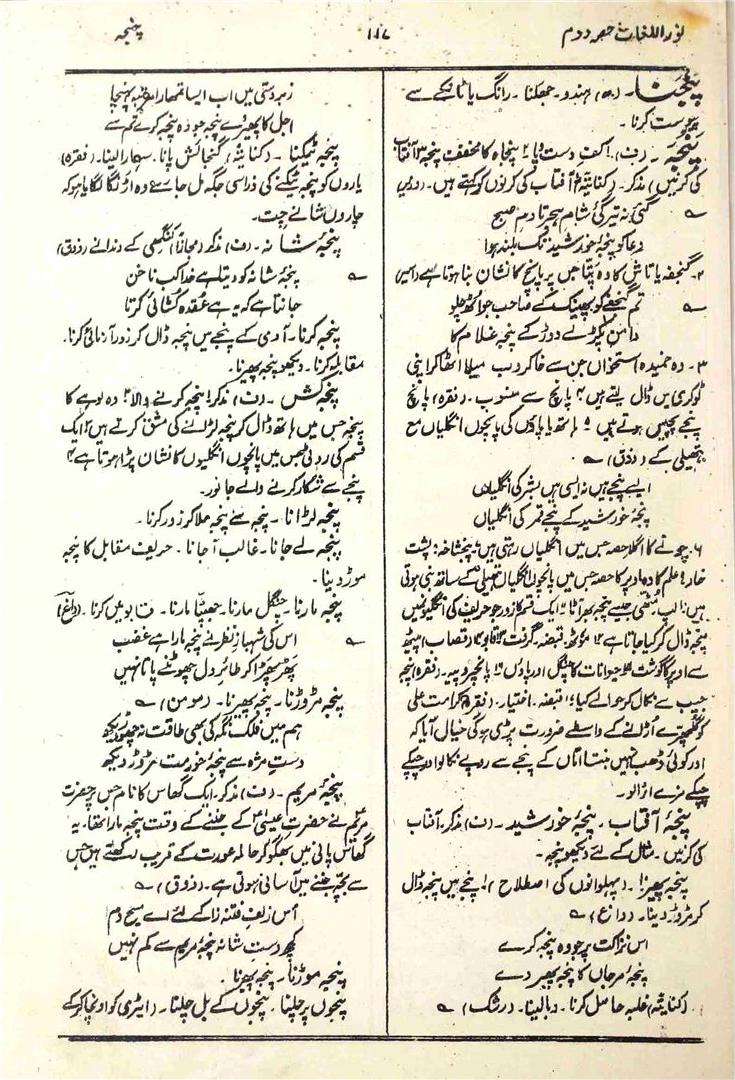 نور اللغات حصہ دوم
۱۱۷
پنجہ
پَنجنا۔ (ھ) ہندو۔ جھکنا۔ رانگ یا ٹانکے سے
پیوست کرنا۔
پَنجَہ۔ (ف)۔ ا کفِ دست و پا ۲ پنجاہ کا مخفف پنجہ ۳ آفتاب
کی کرنیں) مذکر۔ (کنایتہً) آفتاب کی کرنوں کو کہتے ہیں۔
گئی نہ تیرگیٔ شامِ ہجر تا دمِ صبح
دعا کو پنجۂ خورشید تک بلند ہوا
۲۔ گنجفہ یا تاش کا وہ پتّا جس پر پانچ کا نشان بنا ہوتا ہے
تم گنجفے کو پھینک کے صاحب جو اٹھ چلو
دامن پکڑ لے دوڑ کے پنجہ غلام کا
۳۔ وہ خمیدہ استخواں جن سے خاکروب میلا اٹھا کر اپنی
ٹوکری میں ڈال لیتے ہیں ۴ پانچ سے منسوب۔ (فقرہ) پانچ
پنجے پچیس ہوتے ہیں ۵ ہاتھ یا پاؤں کی پانچوں انگلیاں مع
ہتھیلی کے (ذوق) ؎
ایسے پنجے ہیں نہ ایسی ہیں بشر کی انگلیاں
پنجۂ خورشید کے پنجے قمر کی انگلیاں
۶۔ جوتے کا اگلا حصہ جس میں انگلیاں رہتی ہیں ۷ پنجشاخہ: پشت
خار ۸ علم کا وہ اوپر کا حصہ جس میں پانچوں انگلیاں ہتھیلی کے ساتھ بنی ہوتی
ہیں: لپ مٹھی جیسے پنجہ بھر آٹا ۱۰ ایک قسم کا زور جو حریف کی انگلیوں میں
پنجہ ڈال کر کیا جاتا ہے ۱۲ مونٹھ، قبضہ، گرفت، قابو (قصاب) پیٹھ
سے اوپر کا گوشت حیوانات کا چنگل اور پاؤں پانچ روپیہ۔ (فقرہ) پنجہ
جیب سے نکال کر حوالے کیا؛ قبضہ۔ اختیار۔ (فقرہ) کرامت علی
کو گلچھرے اڑانے کے واسطے ضرورت پڑی ہوگی خیال آیا کہ
اور کوئی ڈھب نہیں بنتا اماں کے پنجے سے روپے نکالو اور چپکے
چپکے مزے اڑاؤ۔
پنجۂ آفتاب۔ پنجۂ خورشید۔ (ف) مذکر۔ آفتاب
کی کرنیں۔ مثال کے لئے دیکھو پنجہ۔
پنجہ پھیرنا۔ (پہلوانوں کی اصطلاح) ا پنجے میں پنجہ ڈال
کر مروڑ دینا۔ (داغ) ؎
اس نزاکت پر جو وہ پنجہ کرے
پنجۂ مرجاں کا پنجہ پھیر دے
(کنایتہً) غلبہ حاصل کرنا۔ دبا لینا۔ (رشک) ؎
زبردستی میں اب ایسا تمہارا رتبہ پہنچا
اجل کا پھیر دے پنجہ جو وہ پنجہ کرے تم سے
پنجہ ٹیکنا۔ (کنایتہً) گنجائش پانا۔ سہارا لینا۔ (فقرہ)
یاروں کو پنجہ ٹیکنے کی ذرا سی جگہ مل جائے وہ اڑنگا لگایا ہو کہ
چاروں شانے چت۔
پنجۂ شانہ۔ (ف) مذکر (مجازاً) کنگھی کے دندانے (ذوق)
؎ پنجۂ شانہ کو دیتا ہے خدا کب ناخن
جانتا ہے کہ یہ ہے عُقدہ کُشائی کرتا
پنجہ کرنا۔ آدمی کے پنجے میں پنجہ ڈال کر زور آزمائی کرنا۔
مقابلہ کرنا۔ دیکھو پنجہ پھیرنا۔
پنجہ کش۔ (ف) مذکر۔ ا پنجہ کرنے والا ۲ وہ لوہے کا
پنجہ جس میں ہاتھ ڈال کر پنجہ لڑانے کی مشق کرتے ہیں ۳ ایک
قسم کی روٹی جس میں پانچوں انگلیوں کا نشان پڑا ہوتا ہے ۴
پنجے سے شکار کرنے والے جانور۔
پنجہ لڑانا۔ پنجہ سے پنجہ ملا کر زور کرنا۔
پنجہ لے جانا۔ غالب آ جانا۔ حریف مقابل کا پنجہ
موڑ دینا۔
پنجہ مارنا۔ چنگل مارنا۔ جھپٹا مارنا۔ قابو میں کرنا۔ (داغ)
؎ اس کی شہبازِ نظر نے پنجہ مارا ہے غضب
پھڑ پھڑا کر طائرِ دل چھوٹنے پاتا نہیں
پنجہ مروڑنا۔ پنجہ پھیرنا۔ (مومن) ؎
ہم میں فلک نگہ کی بھی طاقت نہ چھوڑ دیکھ
دستِ مژہ سے پنجۂ خورشید مروڑ دیکھ
پنجۂ مریم۔ (ف) مذکر۔ ایک گھاس کا نام جس پر حضرت
مریم نے حضرت عیسیٰ کے جننے کے وقت پنجہ مارا تھا۔ یہ
گھاس پانی میں بھگو کر حاملہ عورت کے قریب رکھتے ہیں جس
سے بچہ جننے میں آسانی ہوتی ہے۔ (ذوق) ؎
اُس زلفِ فتنہ زا کے لئے اے مسیح دم
کچھ دستِ شانہ پنجۂ مریم سے کم نہیں
پنجہ موڑنا۔ پنجہ پھیرنا۔
پنجوں پر چلنا۔ پنجوں کے بل چلنا۔ (ایڑی کو اونچا کر کے